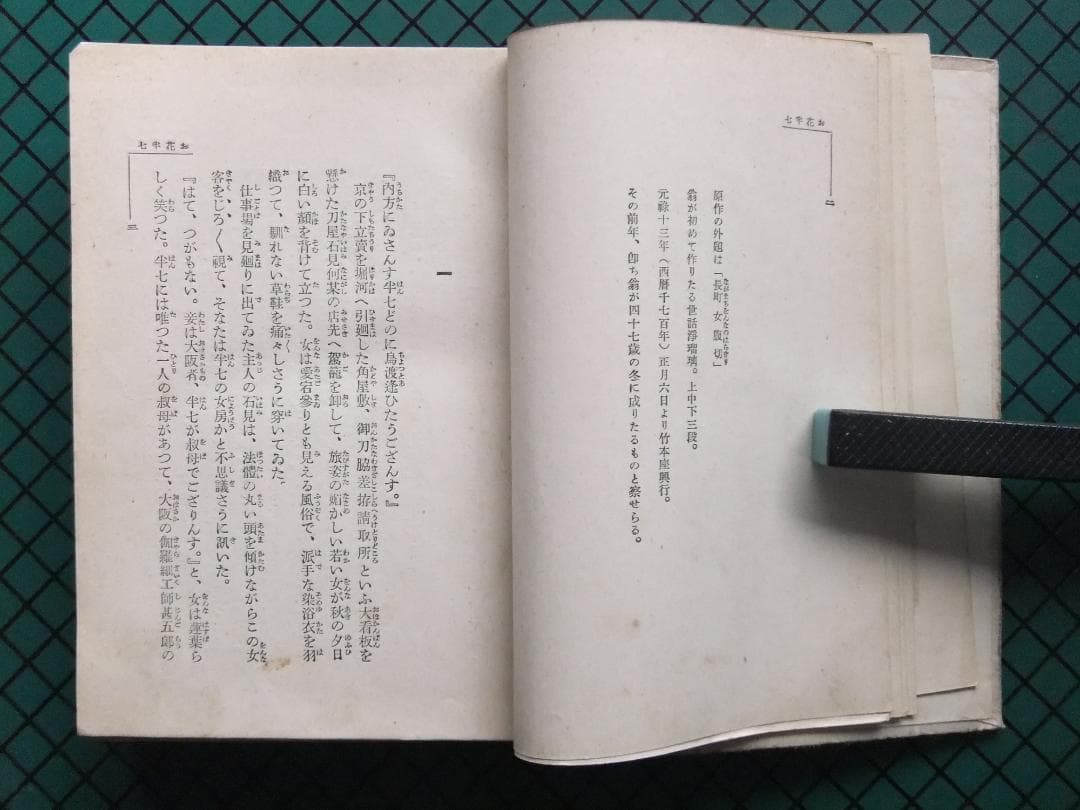 お花半七
二
原作の外題は「長町女腹切」
翁が初めて作りたる世話淨瑠璃。上中下三段。
元祿十三年（西曆千七百年）正月六日より竹本座興行。
その前年、卽ち翁が四十七歲の冬に成りたるものと察せらる。
お花半七
三
一
『內方にゐさんす半七どのに鳥渡逢ひたうござんす。』
京の下立賣を堀河へ引廻した角屋敷、御刀脇差拵請取所といふ大看板を
懸けた刀屋石見何某の店先へ駕籠を卸して、旅姿の媚かしい若い女が秋の夕日
に白い顏を背けて立つた。女は愛宕參りとも見える風俗で、派手な染浴衣を羽
織つて、馴れない草鞋を痛々しさうに穿いてゐた。
仕事場を見廻りに出てゐた主人の石見は、法體の丸い頭を傾けながらこの女
客をじろ〳〵視て、そなたは半七の女房かと不思議さうに訊いた。
『はて、つがもない。妾は大阪者、半七が叔母でござりんす。』と、女は蓮葉ら
しく笑つた。半七には唯つた一人の叔母があつて、大阪の伽羅細工師甚五郎の